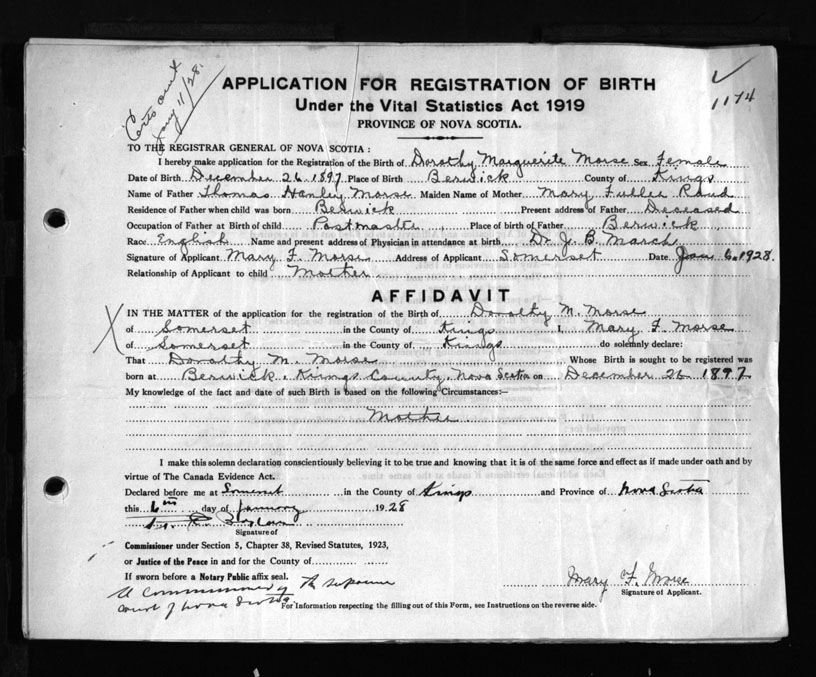 Certs sent
Jany 11/28.
1174
APPLICATION FOR REGISTRATION OF BIRTH
Under the Vital Statistics Act 1919
PROVINCE OF NOVA SCOTIA.
TO THE REGISTRAR GENERAL OF NOVA SCOTIA :
I hereby make application for the Registration of the Birth of Dorothy Marguerite Morse Sex Female
Date of Birth December 26 1897 Place of Birth Berwick County of Kings
Name of Father Thomas Hanley Morse Maiden Name of Mother Mary Fuller Rand
Residence of Father when child was born Berwick Present address of Father Deceased
Occupation of Father at Birth of child Postmaster Place of birth of Father Berwick
Race English Name and present address of Physician in attendance at birth Dr J. B. March
Signature of Applicant Mary F. Morse Address of Applicant Somerset Date Jan 6. 1928.
Relationship of Applicant to child Mother
AFFIDAVIT
IN THE MATTER of the application for the registration of the Birth of Dorothy M. Morse
of Somerset in the County of Kings I, Mary F. Morse
of Somerset in the County of Kings do solemnly declare:
That Dorothy M. Morse Whose Birth is sought to be registered was
born at Berwick, Kings County, Nova Scotia on December 26 1897
My knowledge of the fact and date of such Birth is based on the following Circumstances:—
Mother
I make this solemn declaration conscientiously believing it to be true and knowing that it is of the same force and effect as if made under oath and by
virtue of The Canada Evidence Act.
Declared before me at Somerset in the County of Kings and Province of Nova Scotia
this 6th day of January 1928
Signature of
Commissioner under Section 5, Chapter 38, Revised Statutes, 1923,
or Justice of the Peace in and for the County of
If sworn before a Notary Public affix seal.
A Commissioner of The Supreme
Court of Nova Scotia
Mary F. Morse
Signature of Applicant.
For Information respecting the filling out of this Form, see Instructions on the reverse side.